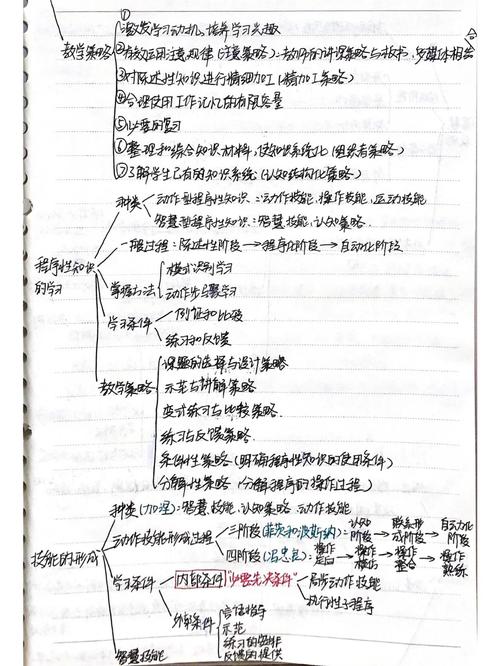 ①激发学习动机,培养学习兴趣
教学策略
②有效运用注意规律(注意策略):教师的讲课策略与板书,多媒体相结合
③对陈述性知识进行精细加工(精加工策略)
④合理使用工作记忆的有限容量
⑤必要的复习
⑥整理和综合知识材料,使知识系统化(组织者策略)
⑦了解学生已有的知识系统(认知结构化策略)
程序性知识的学习
种类
动作型程序性知识:动作技能,操作技能,运动技能
智慧型程序性知识:智慧技能,认知策略.
一般过程:陈述性阶段→程序化阶段→自动化阶段
掌握方法
模式识别学习
动作步骤学习
学习条件
例证和比较
练习和反馈
教学策略
课题的选择与设计策略
示范与讲解策略
变式练习与比较策略.
练习与反馈策略.
条件性策略(明确程序性知识的使用条件)
分解性策略(分解程序的操作过程)
技能的形成
种类(加涅):智慧技能.认知策略.动作技能
动作技能形成过程
三阶段(菲茨和波斯纳):认知阶段→联系形成阶段→自动化阶段
四阶段(冯忠良):操作定向→操作模仿→操作整合→操作熟练
学习条件
内部条件"必要先决条件"
局部动作技能
执行性子程序
外部条件
言语指导
示范
练习的安排
反馈的提供
智慧技能